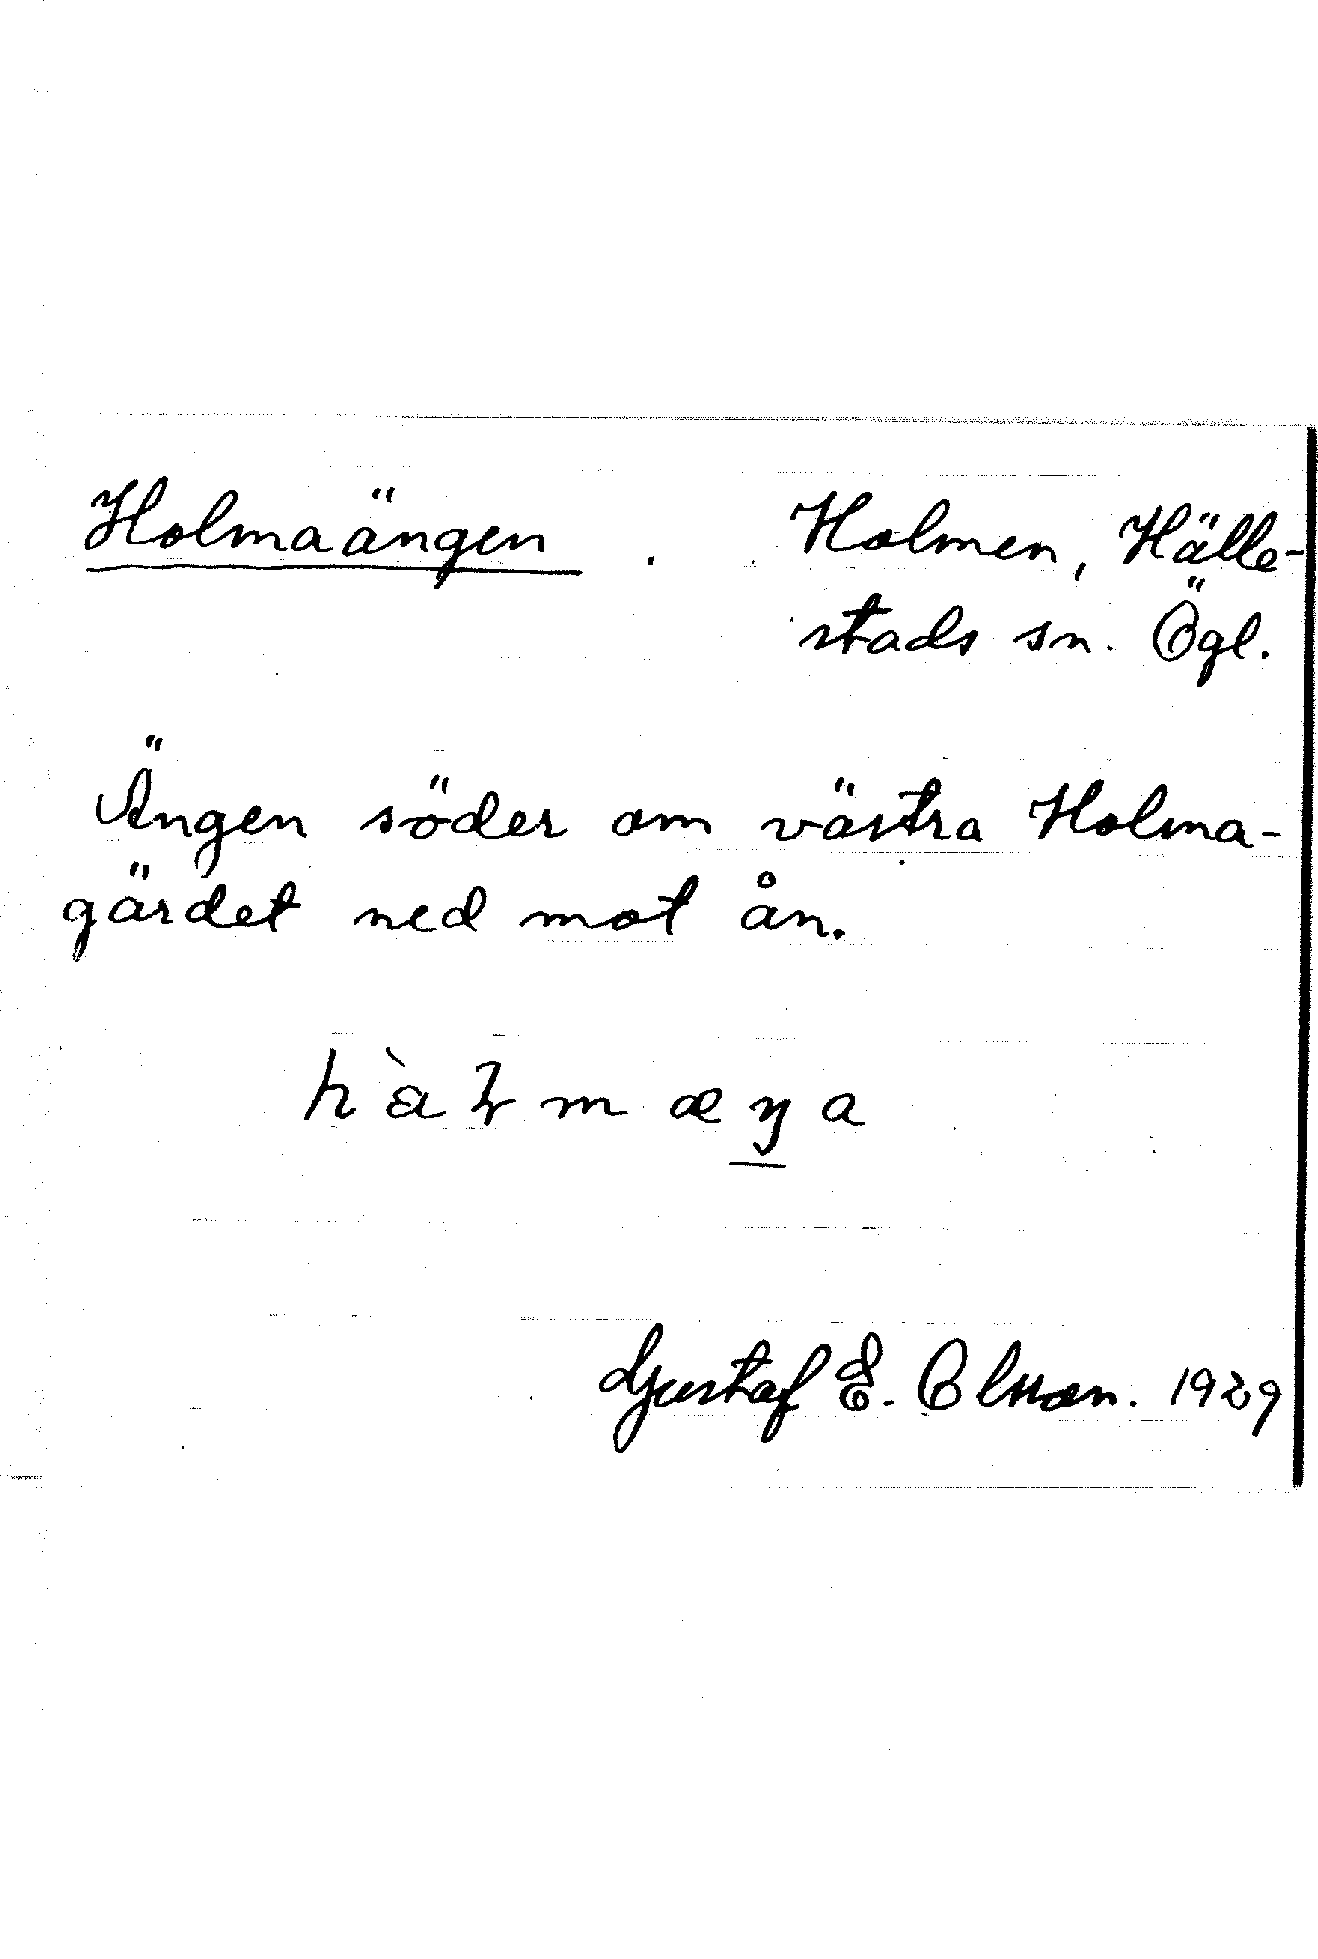 Holmaängen. Holmen, Hälle-
stads sn. Ögl.
Ängen söder om västra Holma-
gärdet ned mot ån.
Gustaf E. Olsson. 1929